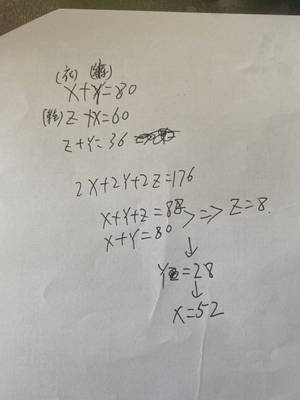 (衣)
X+Y=80
(鞋) Z+X=60
Z+Y=36
2X+2Y+2Z=176
X+Y+Z=88
X+Y=80 => Z=8.
↓
Y=28
↓
X=52